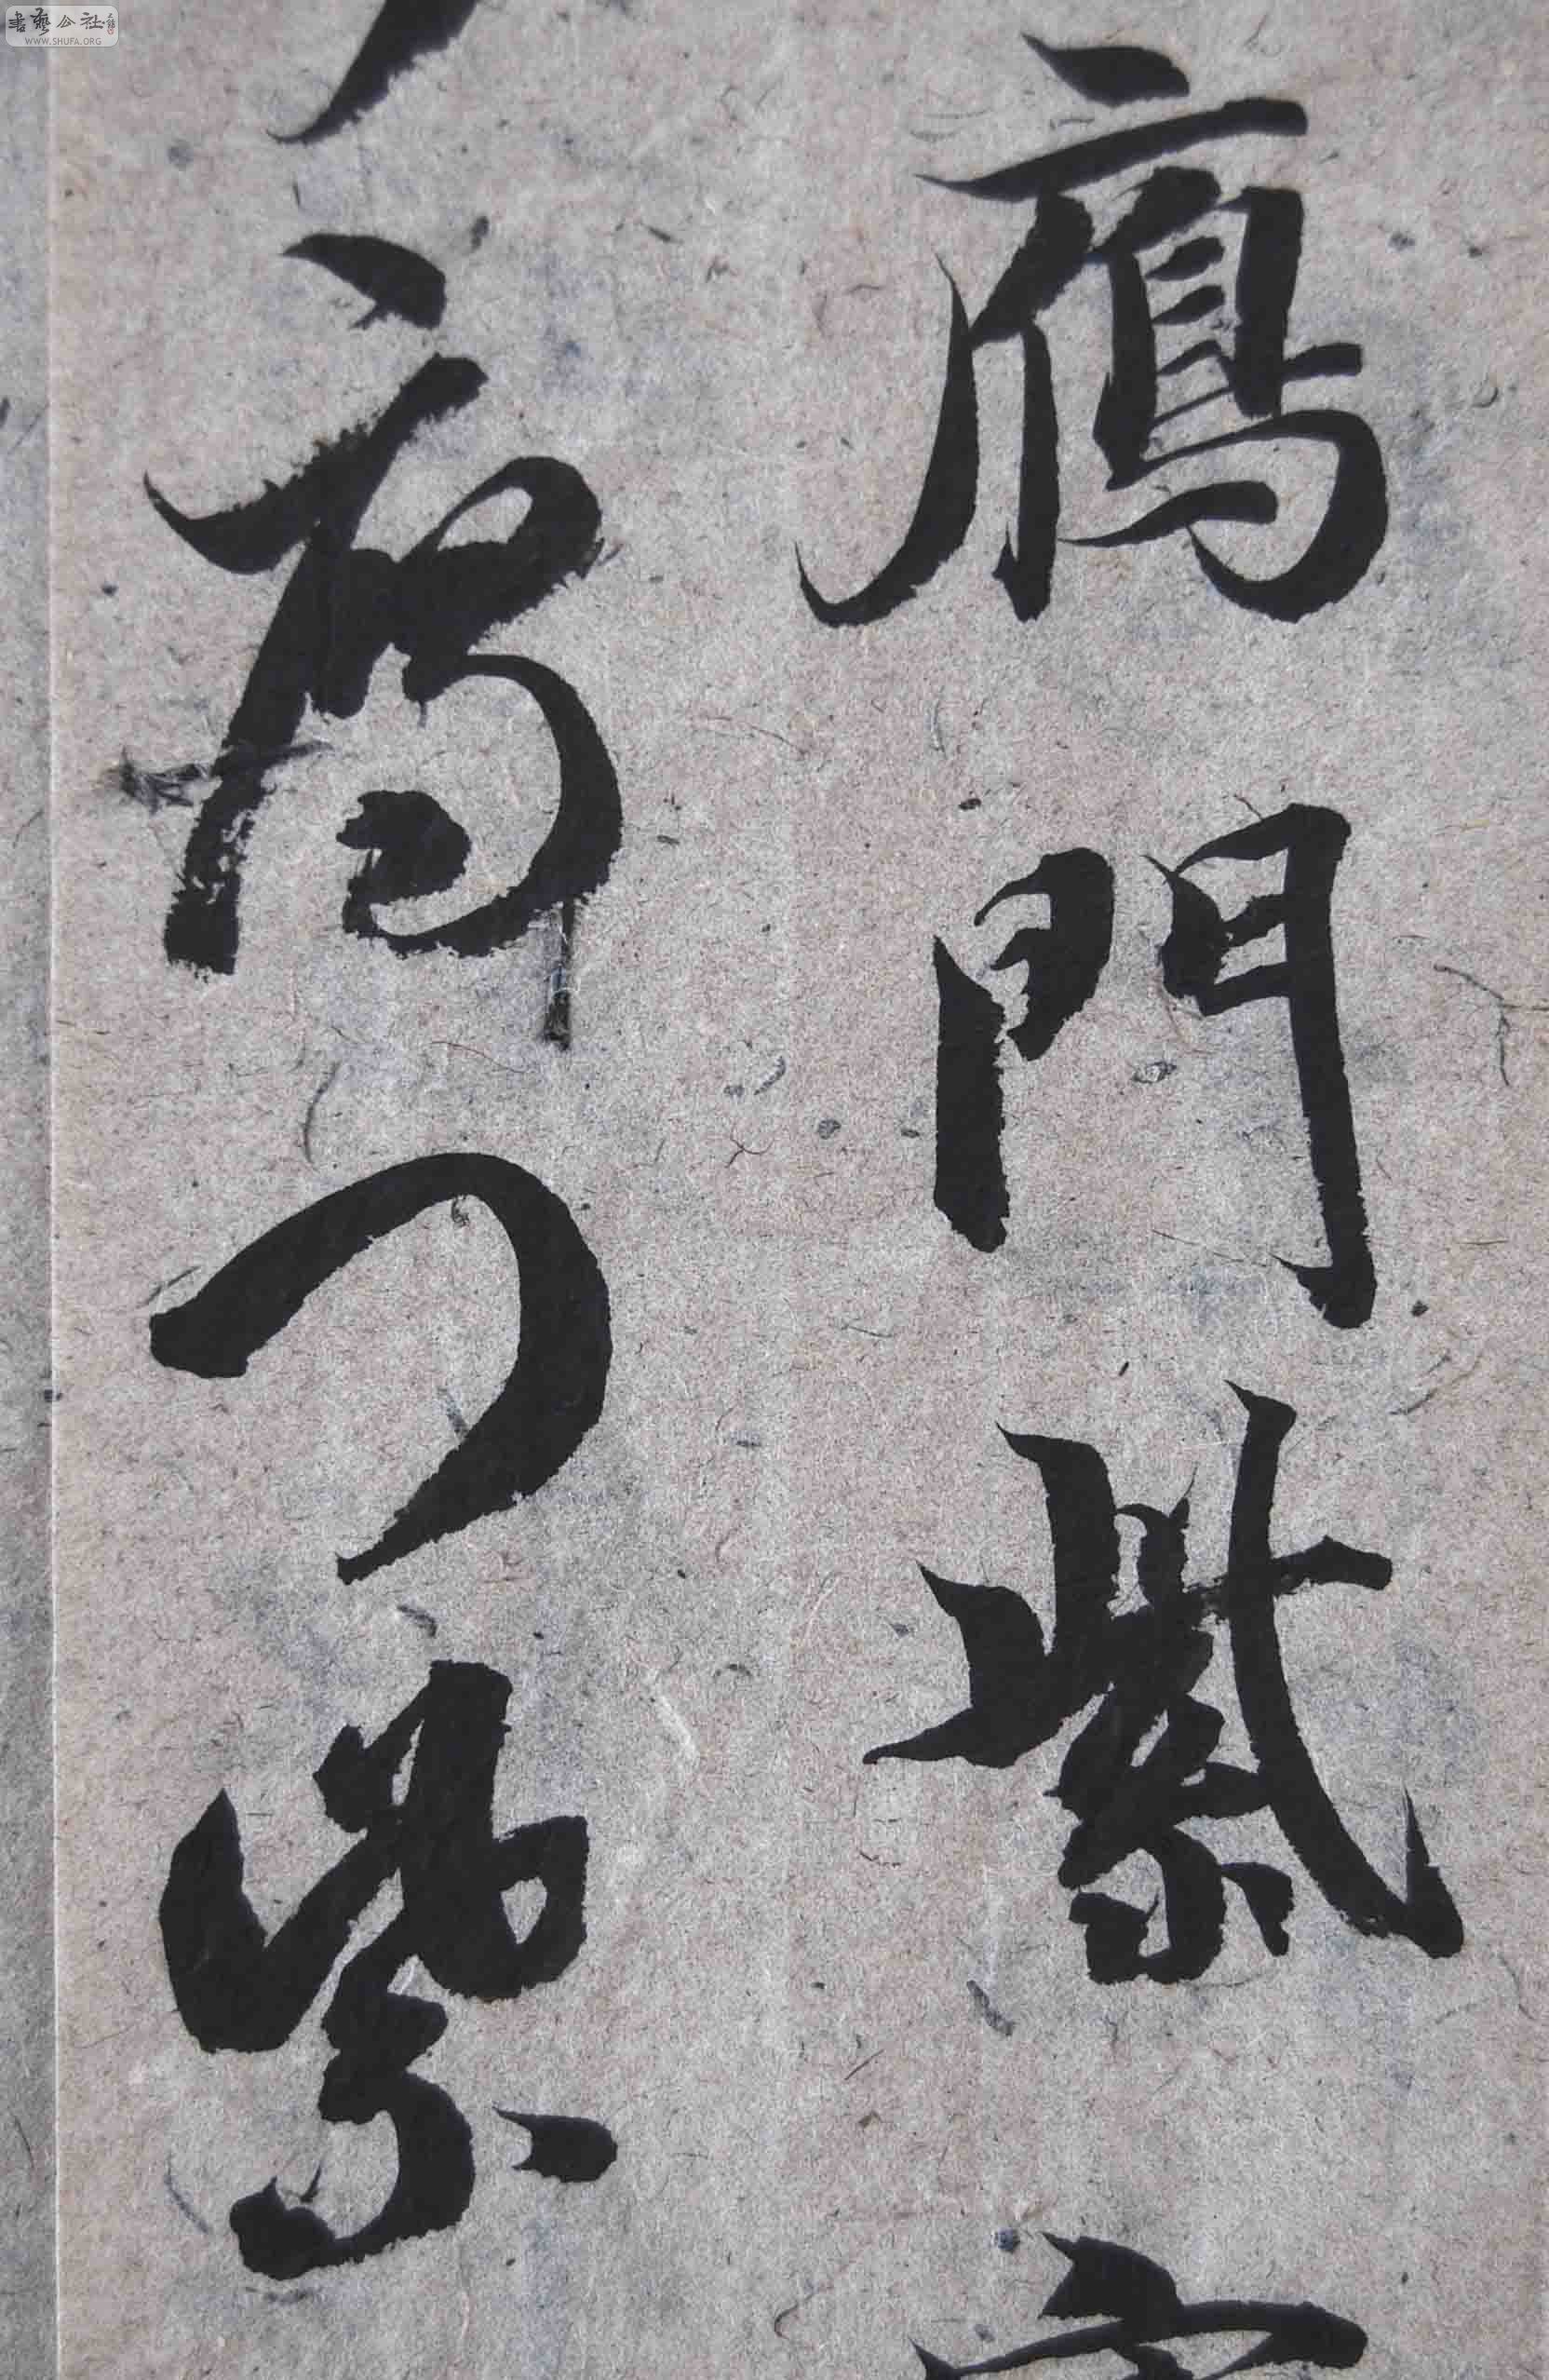 書藝公社
WWW.SHUFA.ORG
鴈門紫
鴈門紫